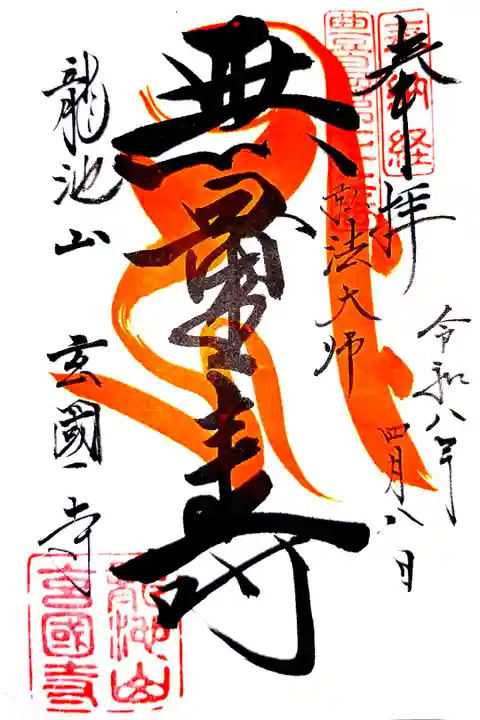 奉拝
令和八年
四月八日
弘法大師
無量寿
龍池山 玄國寺
奉納経
龍池山
玄國寺